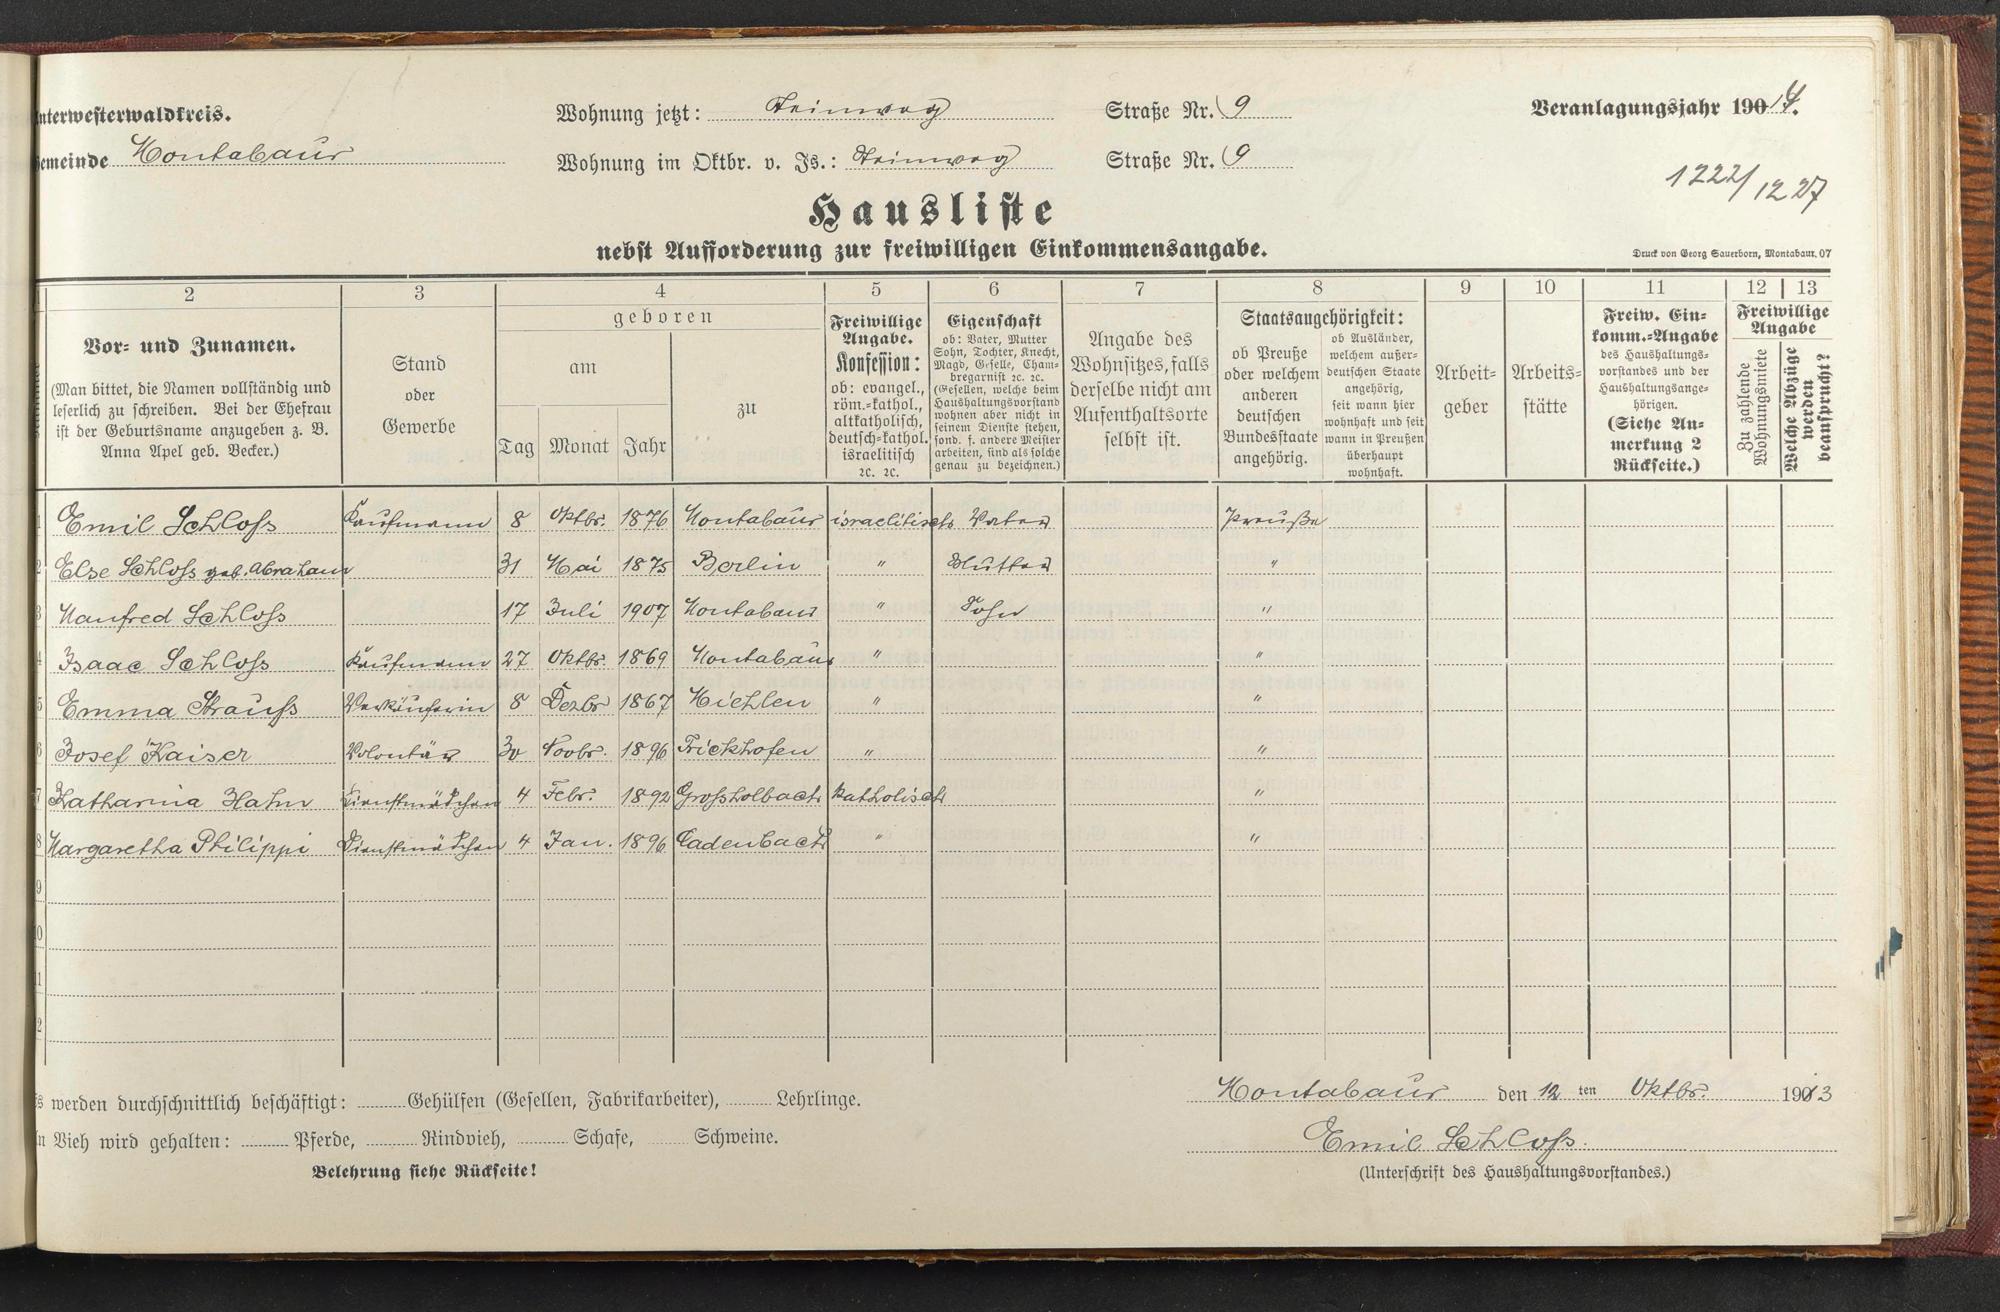 nterwesterwaldkreis.
Wohnung jetzt: Steinweg Straße Nr. 9
Veranlagungsjahr 190 14.
emeinde Montabaur
Wohnung im Oktbr. v. Js.: Steinweg Straße Nr. 9
1222/1227
Hausliste
nebst Aufforderung zur freiwilligen Einkommensangabe.
Druck von Georg Sauerborn, Montabaur. 07
2 3 4 5 6 7 8 9 10 11 12 13
Vor- und Zunamen.
(Man bittet, die Namen vollständig und
leserlich zu schreiben. Bei der Ehefrau
ist der Geburtsname anzugeben z. B.
Anna Apel geb. Becker.)
Stand
oder
Gewerbe
geboren
am
zu
Tag Monat Jahr
Freiwillige
Angabe.
Konfession:
ob: evangel.,
röm.-kathol.,
altkatholisch,
deutsch-kathol.
israelitisch
2c. 2c.
Eigenschaft
ob: Vater, Mutter
Sohn, Tochter, Knecht,
Magd, Geselle, Cham-
bregarnist 2c. 2c.
(Gesellen, welche beim
Haushaltungsvorstand
wohnen aber nicht in
seinem Dienste stehen,
sond. f. andere Meister
arbeiten, sind als solche
genau zu bezeichnen.)
Angabe des
Wohnsitzes, falls
derselbe nicht am
Aufenthaltsorte
selbst ist.
Staatsangehörigkeit:
ob Preuße
oder welchem
anderen
deutschen
Bundesstaate
angehörig.
ob Ausländer,
welchem außer-
deutschen Staate
angehörig,
seit wann hier
wohnhaft und seit
wann in Preußen
überhaupt
wohnhaft.
Arbeit-
geber
Arbeits-
stätte
Freiw. Ein-
komm.-Angabe
des Haushaltungs-
vorstandes und der
Haushaltungsange-
hörigen.
(Siehe An-
merkung 2
Rückseite.)
Freiwillige
Angabe
Zu zahlende
Wohnungsmiete
Welche Abzüge
werden
beansprucht?
1 Emil Schloß Kaufmann 8 Oktbr. 1876 Montabaur israelitisch Vater Preuße
2 Else Schloß geb. Abraham 31 Mai 1875 Berlin " Mutter "
3 Manfred Schloß 17 Juli 1907 Montabaur " Sohn "
4 Isaac Schloß Kaufmann 27 Oktbr. 1869 Montabaur " "
5 Emma Strauß Verkäuferin 8 Dezbr 1867 Miehlen " "
6 Josef Kaiser Volontär 30 Novbr. 1896 Frickhofen " "
7 Katharina Hahn Dienstmädchen 4 Febr. 1892 Großholbach katholisch "
8 Margaretha Philippi Dienstmädchen 4 Jan. 1896 Cadenbach " "
9
10
11
12
s werden durchschnittlich beschäftigt: Gehülfen (Gesellen, Fabrikarbeiter), Lehrlinge.
Montabaur den 12 ten Oktbr. 1913
n Vieh wird gehalten: Pferde, Rindvieh, Schafe, Schweine.
Emil Schloß.
Belehrung siehe Rückseite!
(Unterschrift des Haushaltungsvorstandes.)